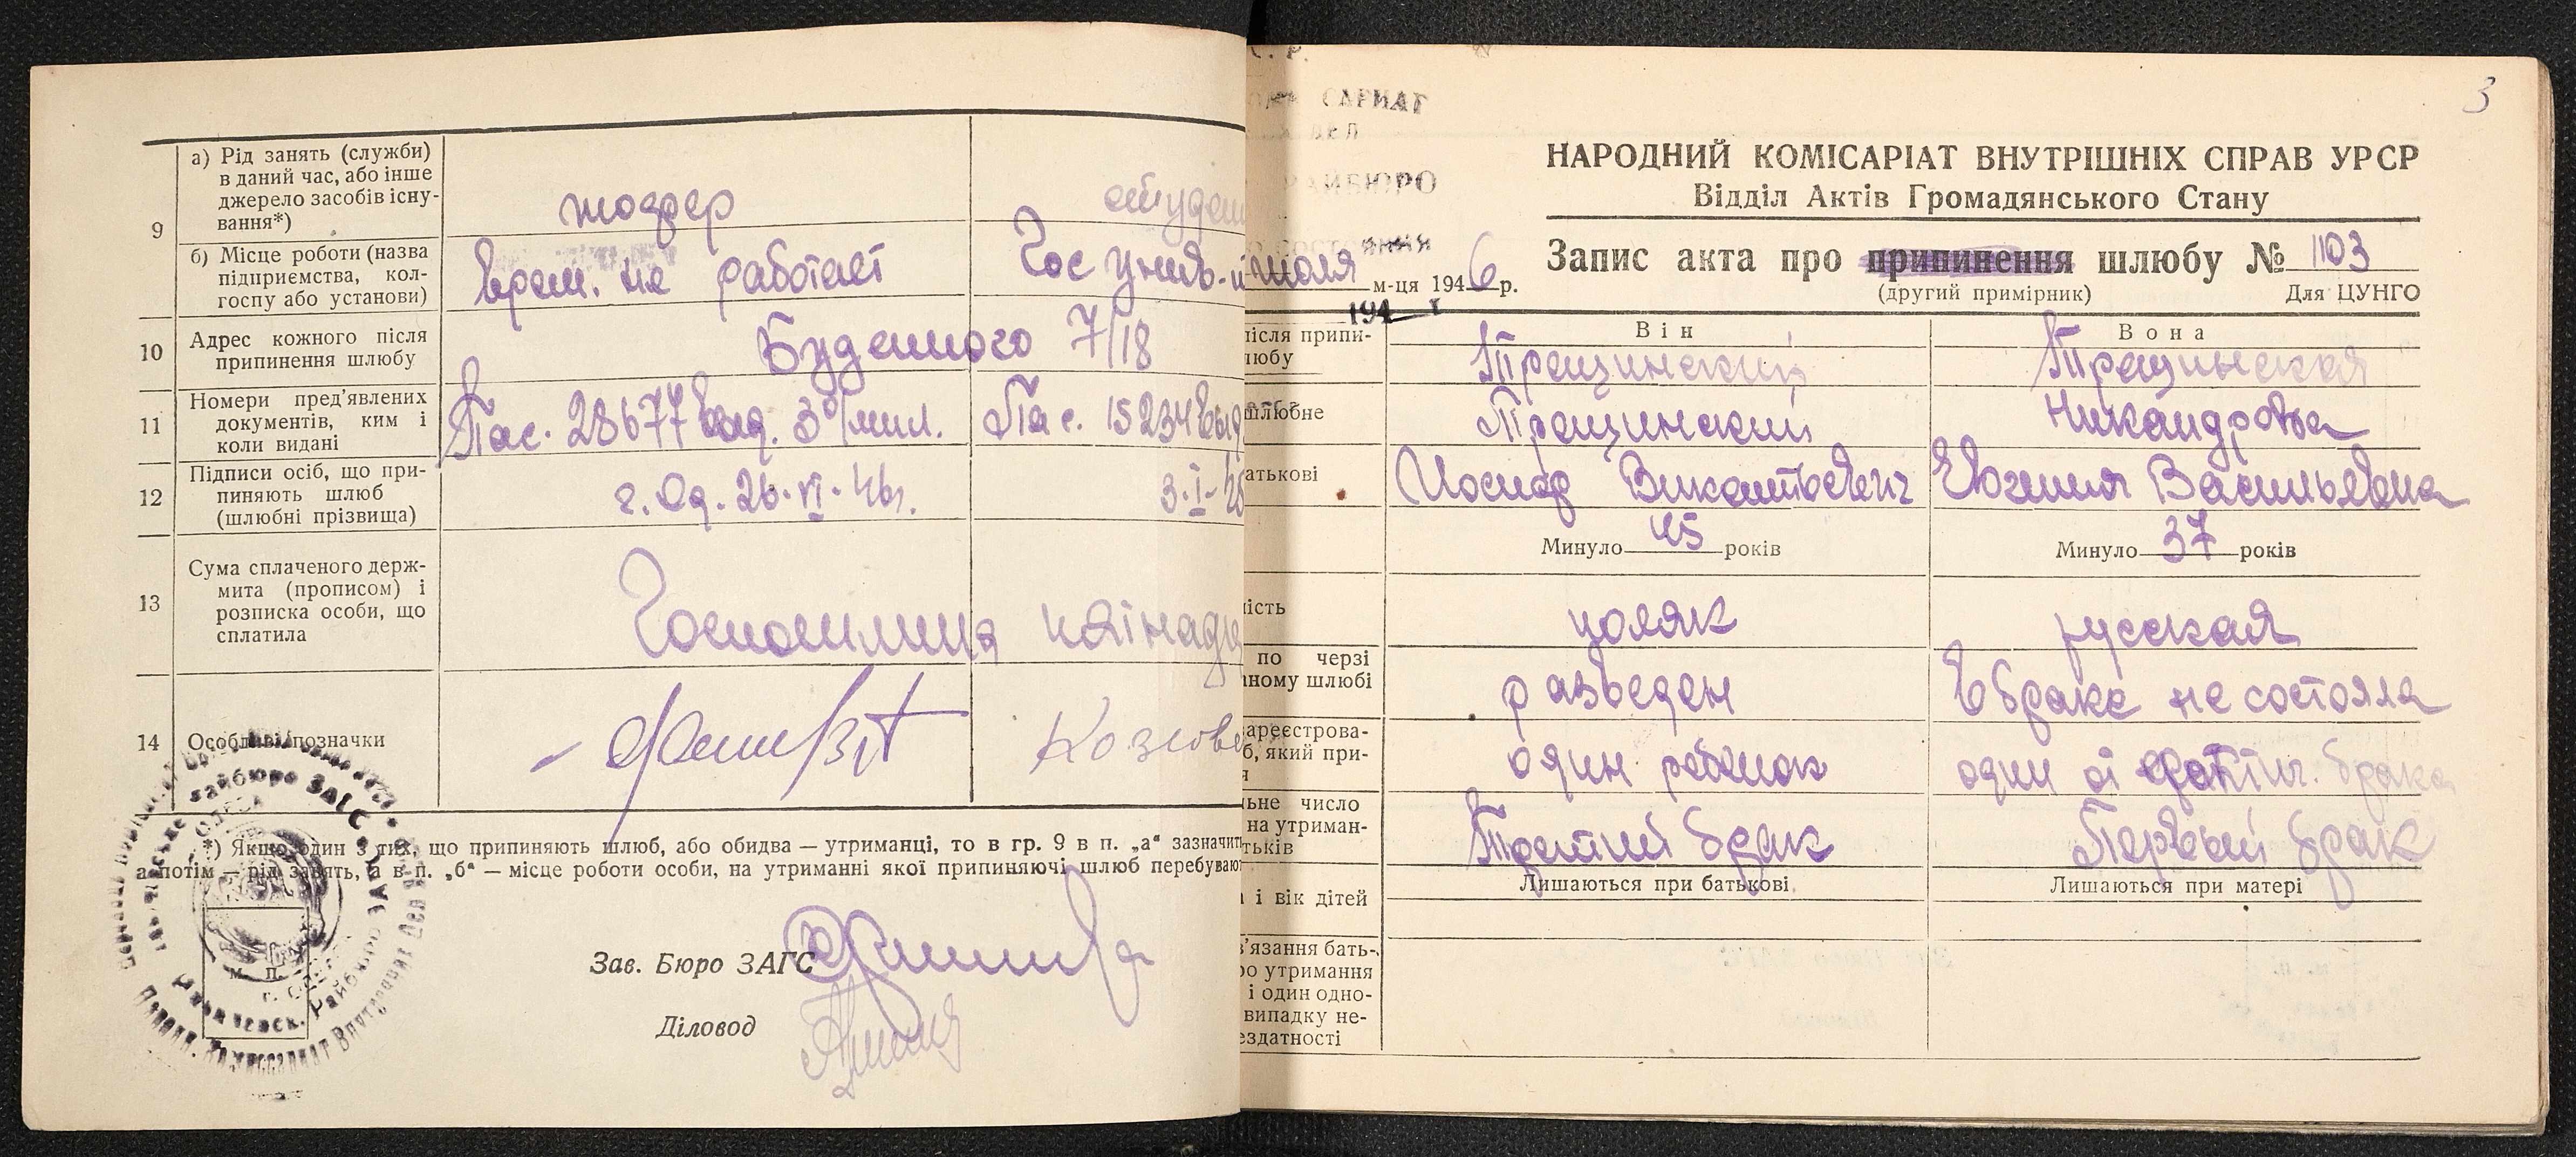 9
а) Рід занять (служби)
в даний час, або інше
джерело засобів існу-
вання*)
шофер
студен
б) Місце роботи (назва
підприємства, кол-
госпу або установи)
врем. не работает
Гос унив-
10
Адрес кожного після
припинення шлюбу
Буденного 7/18
11
Номери пред'явлених
документів, ким і
коли видані
Пас. 28677 выд. 3 о/мил.
Пас. 15234 выд
12
Підписи осіб, що при-
пиняють шлюб
(шлюбні прізвища)
г. Од. 26.VI.46г.
3.I-
13
Сума сплаченого держ-
мита (прописом) і
розписка особи, що
сплатила
14
Особливі позначки
*) Якщо один з тих, що припиняють шлюб, або обидва — утриманці, то в гр. 9 в п. „а“ зазначит
а потім — рід занять, а в п. „б“ — місце роботи особи, на утриманні якої припиняючі шлюб перебувают
Зав. Бюро ЗАГС
Діловод
м. п.
3
САРИАТ
РАЙБЮРО
НАРОДНИЙ КОМІСАРІАТ ВНУТРІШНІХ СПРАВ УРСР
Відділ Актів Громадянського Стану
Запис акта про припинення шлюбу № 1103
(другий примірник)
Для ЦУНГО
июля м-ця 1946 р.
194
Він
Вона
ісля припи-
любу
Трещинский
Трещинская
шлюбне
Трещинский
Никандрова
атькові
Иосиф Викентьевич
Евгения Васильевна
Минуло 45 років
Минуло 37 років
ість
поляк
русская
по черзі
ному шлюбі
разведен
В браке не состояла
ареєстрова-
б, який при-
один ребенок
один от брака
ьне число
на утриман-
тьків
Третий брак
Первый брак
Лишаються при батькові
Лишаються при матері
і вік дітей
в'язання бать-
ро утримання
і один одно-
випадку не-
ездатності